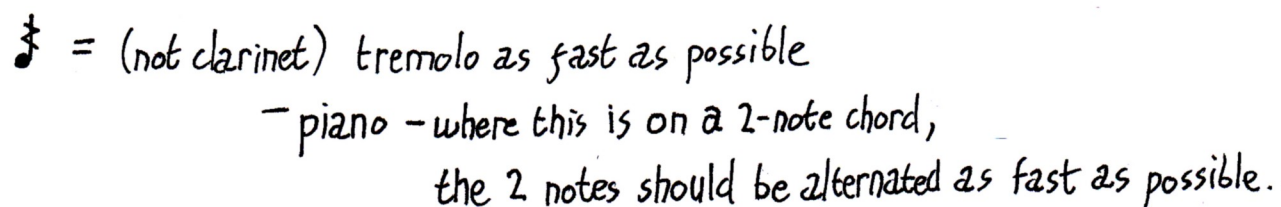 = (not clarinet) tremolo as fast as possible
- piano - where this is on a 2-note chord,
the 2 notes should be alternated as fast as possible.